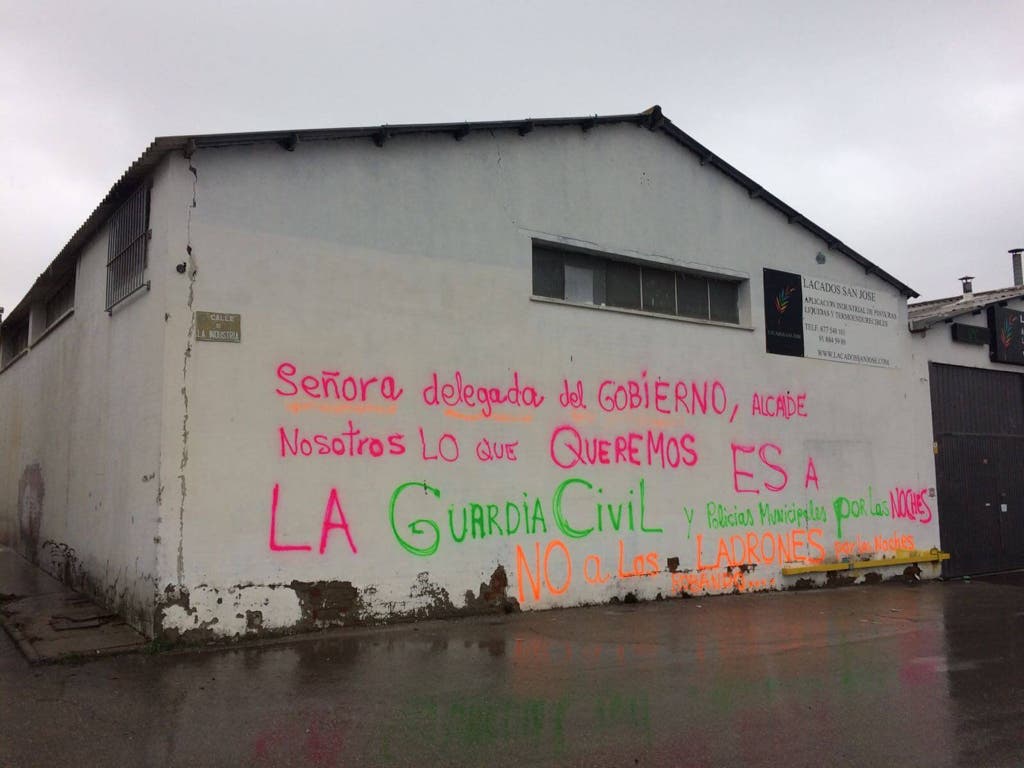 CALLE
LA INDUSTRIA
LACADOS SAN JOSE
APLICACION INDUSTRIAL DE PINTURAS
LIQUIDAS Y TERMOENDURECIBLES
TELF. 677 540 101
WWW.LACADOSSANJOSE.COM
Señora delegada del GOBIERNO, ALCALDE
NOSOTROS LO QUE QUEREMOS ES A
LA GUARDIA CIVIL y Policias Municipales POR LAS NOCHES
NO a Las LADRONES por la Noches
ROBANDO...